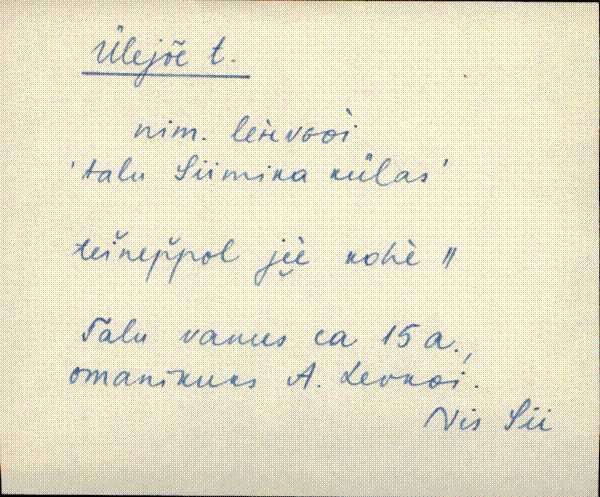 Ülejõe t.
nim. leievooi
'talu Siimika külas'
teišneppol jẹ̀e kohè ||
Talu vanus ca 15 a.,
omanikuks A. Levkoi.
Vis Sii